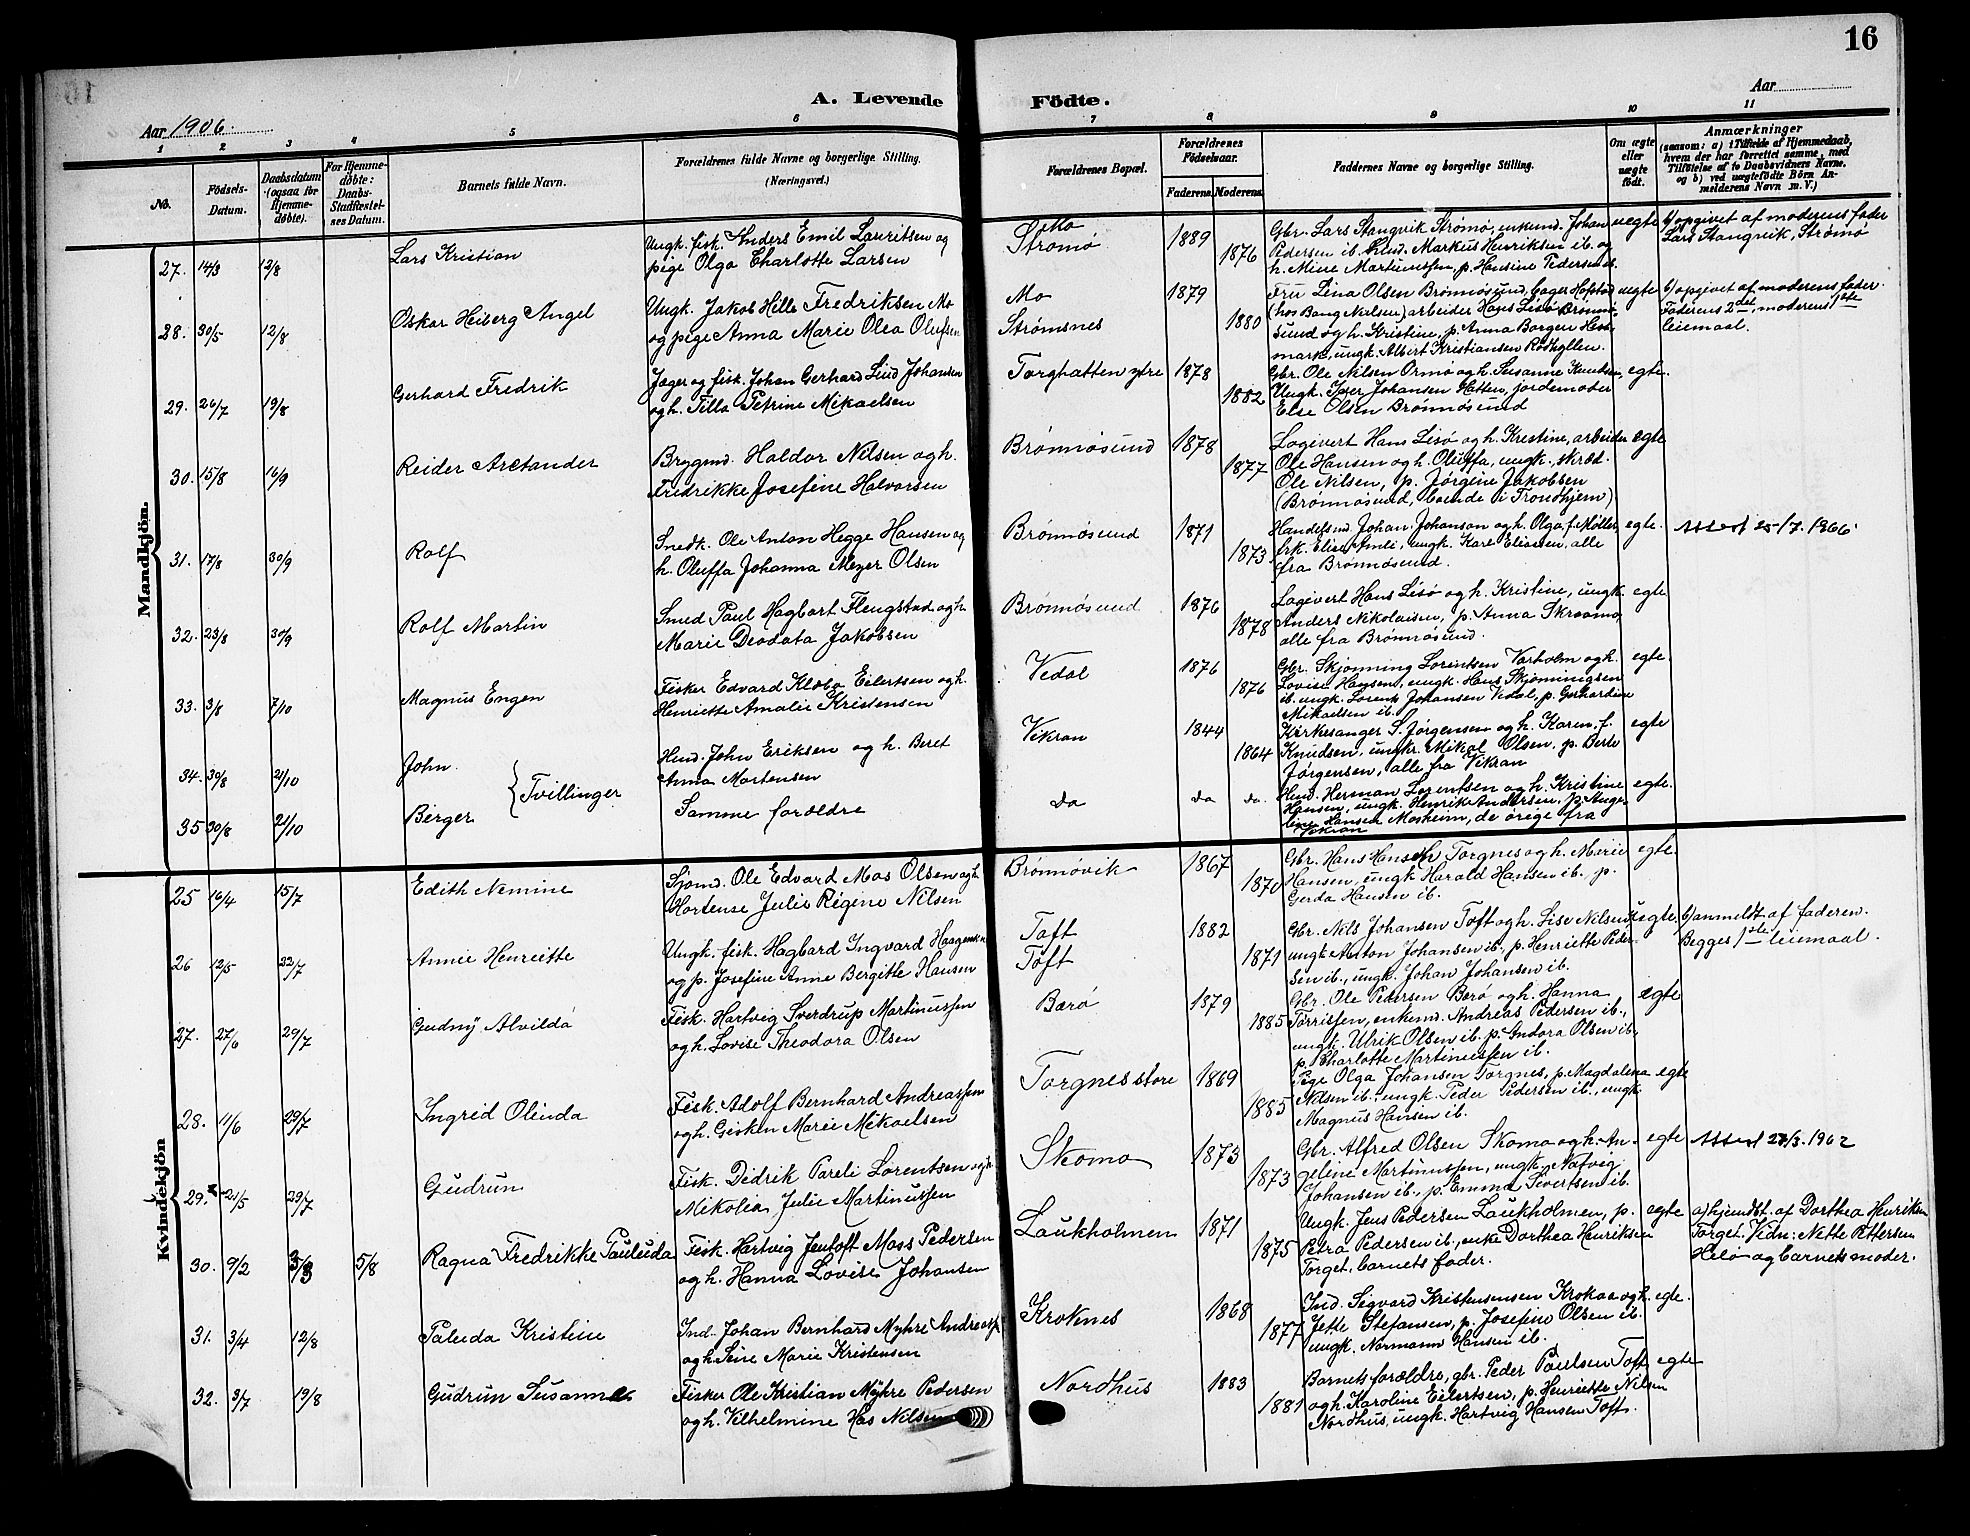 16
A. Levende Födte.
Aar 1906.
Aar
1 2 3 4 5 6 7 8 9 10 11
No.
Födsels-Datum.
Daabsdatum (ogsaa for Hjemmedøbte).
For Hjemmedøbte: Daabs-Stadfæstelses Datum.
Barnets fulde Navn.
Forældrenes fulde Navne og borgerlige Stilling. (Næringsvei.)
Forældrenes Bopæl.
Forældrenes Födselsaar.
Faderens Moderens
Faddernes Navne og borgerlige Stilling.
Om ægte eller uægte födt.
Anmærkninger
(saasom: a) i Tilfælde af Hjemmedaab, hvem der har forrettet samme, med Tilföielse af to Daabsvidners Navne. og b) ved uægtefödte Börn Anmelderens Navn m. V.)
Mandkjön.
27. 14/3 12/8 Lars Kristian
Ungk. fisk. Anders Emil Lauritsen og
pige Olga Charlotte Larsen
Mo
Strømø
1889 1876
Gbr. Lars Stangvik Strømø, enkemd. Johan
Pedersen ib. Markus Henriksen ib. og
h. Mine Martinussen, p. Hansine Pedersen ib.
uegte
b) opgivet af moderens fader
Lars Stangvik, Strømø
28. 30/5 12/8 Oskar Heiberg Angel
Ungk. Jakob Hille Fredriksen Mo
og pige Anna Marie Olea Olufsen
Mo
Strømsnes
1879 1880
Fru Lina Olsen Brønnøsund,
(hos Bang Nielsen) arbeider Hans Lisø Brønnø-
sund og h. Kristine, p. Anna Borgen
mark, ungk. Albert Kristiansen Rødhyllen.
uegte
b) opgivet af moderens fader.
Faderens 2det, moderens 1ste
leiemaal.
29. 26/7 19/8 Gerhard Fredrik
Jæger og fisk. Johan Gerhard Lind Johansen
og h. Tilla Petrine Mikaelsen
Torghatten ytre
1878 1882
Gbr. Ole Nilsen Ormø og h. Susanne Knudsen,
Ungk. Johansen Hatten, jordemoder
Else Olsen Brønnøsund
egte.
30. 15/8 16/9 Reider Arctander
Brygmd. Haldor Nilsen og h.
Fredrikke Josefine Halvorsen
Brønnøsund
1878 1877
Logivert Hans Lisø og h. Krestine, arbeider
Ole Hansen og h. Oluffa, ungk. skræd.
Ole Nilsen, p. Jørgine Jakobsen
(Brønnøsund, boende i Trondhjem)
egte
31. 17/8 30/9 Rolf
Snedk. Ole Anton Hegge Hansen og
h. Oluffa Johanna Meyer Olsen
Brønnøsund
1871 1873
Handelsmd. Johan Johanson og h. Olga, f. Møller,
frk. Elise Amli, ungk. Karl Eliassen, alle
fra Brønnøsund.
egte.
Attest 25/7. 1966
32. 23/8 30/9 Rolf Martin
Smed Paul Hagbart Flengstad og h.
Marie Deodata Jakobsen
Brønnøsund
1876 1878
Logivert Hans Lisø og h. Kristine, ungk.
Anders Nikolaisen, p. Anna Skraamo,
alle fra Brønnøsund.
egte
33. 3/8 7/10 Magnus Engen
Fisker Edvard Klæbo Eilertsen og h.
Henriette Amalie Kristensen
Vedal
1876 1876
Gbr. Skjønning Lorentsen Varholm og h.
Lovise Hansen, ungk. Hans Skjønningsen
ib. ungk. Lorents Johansen Vedal, p. Gerhardine
Mikaelsen ib.
egte.
34. 30/8 21/10 John } Tvillinger
Hmd. John Eriksen og h. Beret
Anna Mortensen
Vikran
1844 1864
Kirkesanger S. Jørgensen og h. Karen, f.
Knudsen, ungkr. Mikal Olsen, p. Berte
Jørgensen, alle fra Vikran
egte
35 30/8 21/10 Berger
Samme forældre
da da da.
Hmd. Herman Lorentsen og h. Kristine
Hansen, ungk. Henrik Andersen, p. Ange-
line Hansen Mosheim, de øvrige fra
Vikran
egte.
Kvindekjön
25 16/4 15/7 Edith Nemine
Sjømd. Ole Edvard Mos Olsen og h.
Hortense Julie Regine Nilsen
Brønnøvik
1867 1870
Gbr. Hans Hansen Torgnes og h. Marie
Hansen, ungk. Harald Hansen ib. p.
Gerda Hansen ib.
egte.
26 12/5 22/7 Annie Henriette
Ungk. fisk. Hagbard Ingvard Haagensen
og p. Josefine Anne Bergitte Hansen
Toft
Toft
1882 1871
Gbr. Nils Johansen Toft og h. Lise Nilsen,
ungk. Anton Johansen ib. p. Henriette Peder-
sen ib., ungk. Johan Johansen ib.
uegte.
b) anmeldt af faderen.
Begges 1ste leiemaal.
27. 27/6 29/7 Gudny Alvilda
Fisk. Hartvig Sverdrup Martinussen
og h. Lovise Theodora Olsen
Bærø
1879 1885
Gbr. Ole Pedersen Bærø og h. Hanna
Torrissen, enkemd. Andreas Pedersen ib.,
ungk. Ulrik Olsen ib. p. Andora Olsen ib,
p. Charlotte Martinussen ib.
egte
28. 11/6 29/7 Ingrid Olinda
Fisk. Adolf Bernhard Andreassen
og h. Gisken Marie Mikaelsen
Torgnes store
1869 1885
Pige Olga Johansen Torgnes, p. Magdalena
Nilsen ib., ungk. Peder Pedersen ib., ungk.
Magnus Hansen ib.
egte
29. 21/5 29/7 Gudrun
Fisk. Didrik Pareli Lorentsen og h.
Mikolia Julie Martinussen
Skomo
1873 1873
Gbr. Alfred Olsen Skomo og h. An-
geline Martinussen, ungk.
Johansen ib., p. Emma Sivertsen ib.
egte
Attest 27/3. 1962
30. 9/2 3/8 5/8 Ragna Fredrikke Pauluda
Fisk. Hartvig Jentoft Moss Pedersen
og h. Hanna Lovise Johansen
Laukholmen
1871 1875
Ungk. Jens Pedersen Laukholmen, p.
Petra Pedersen ib., enke Dorthea Henriksen
Torget, barnets fader.
egte
a) hjemdt. af Dorthea Henriksen
Torget. Vidn: Nette Pettersen
Helø og barnets moder.
31. 3/4 12/8 Paluda Kristine
Ind. Johan Bernhard Myhre Andreassen
og h. Seine Marie Kristensen
Kroknes
1868 1877
Ind. Sigvard Kristensensen Krokaa og h.
Jette Stefansen, p. Josefine Olsen ib.
ungk. Normann Hansen ib.
egte.
32. 3/7 19/8 Gudrun Susanna
Fisker Ole Kristian Myhre Pedersen
og h. Vilhelmine Has Nilsen
Nordhus
1883 1881
Barnets forældre, gbr. Peder Paulsen Toft
og h. Karoline Eilertsen, p. Henriette Nilsen
Nordhus, ungk. Hartvig Hansen Toft.
egte